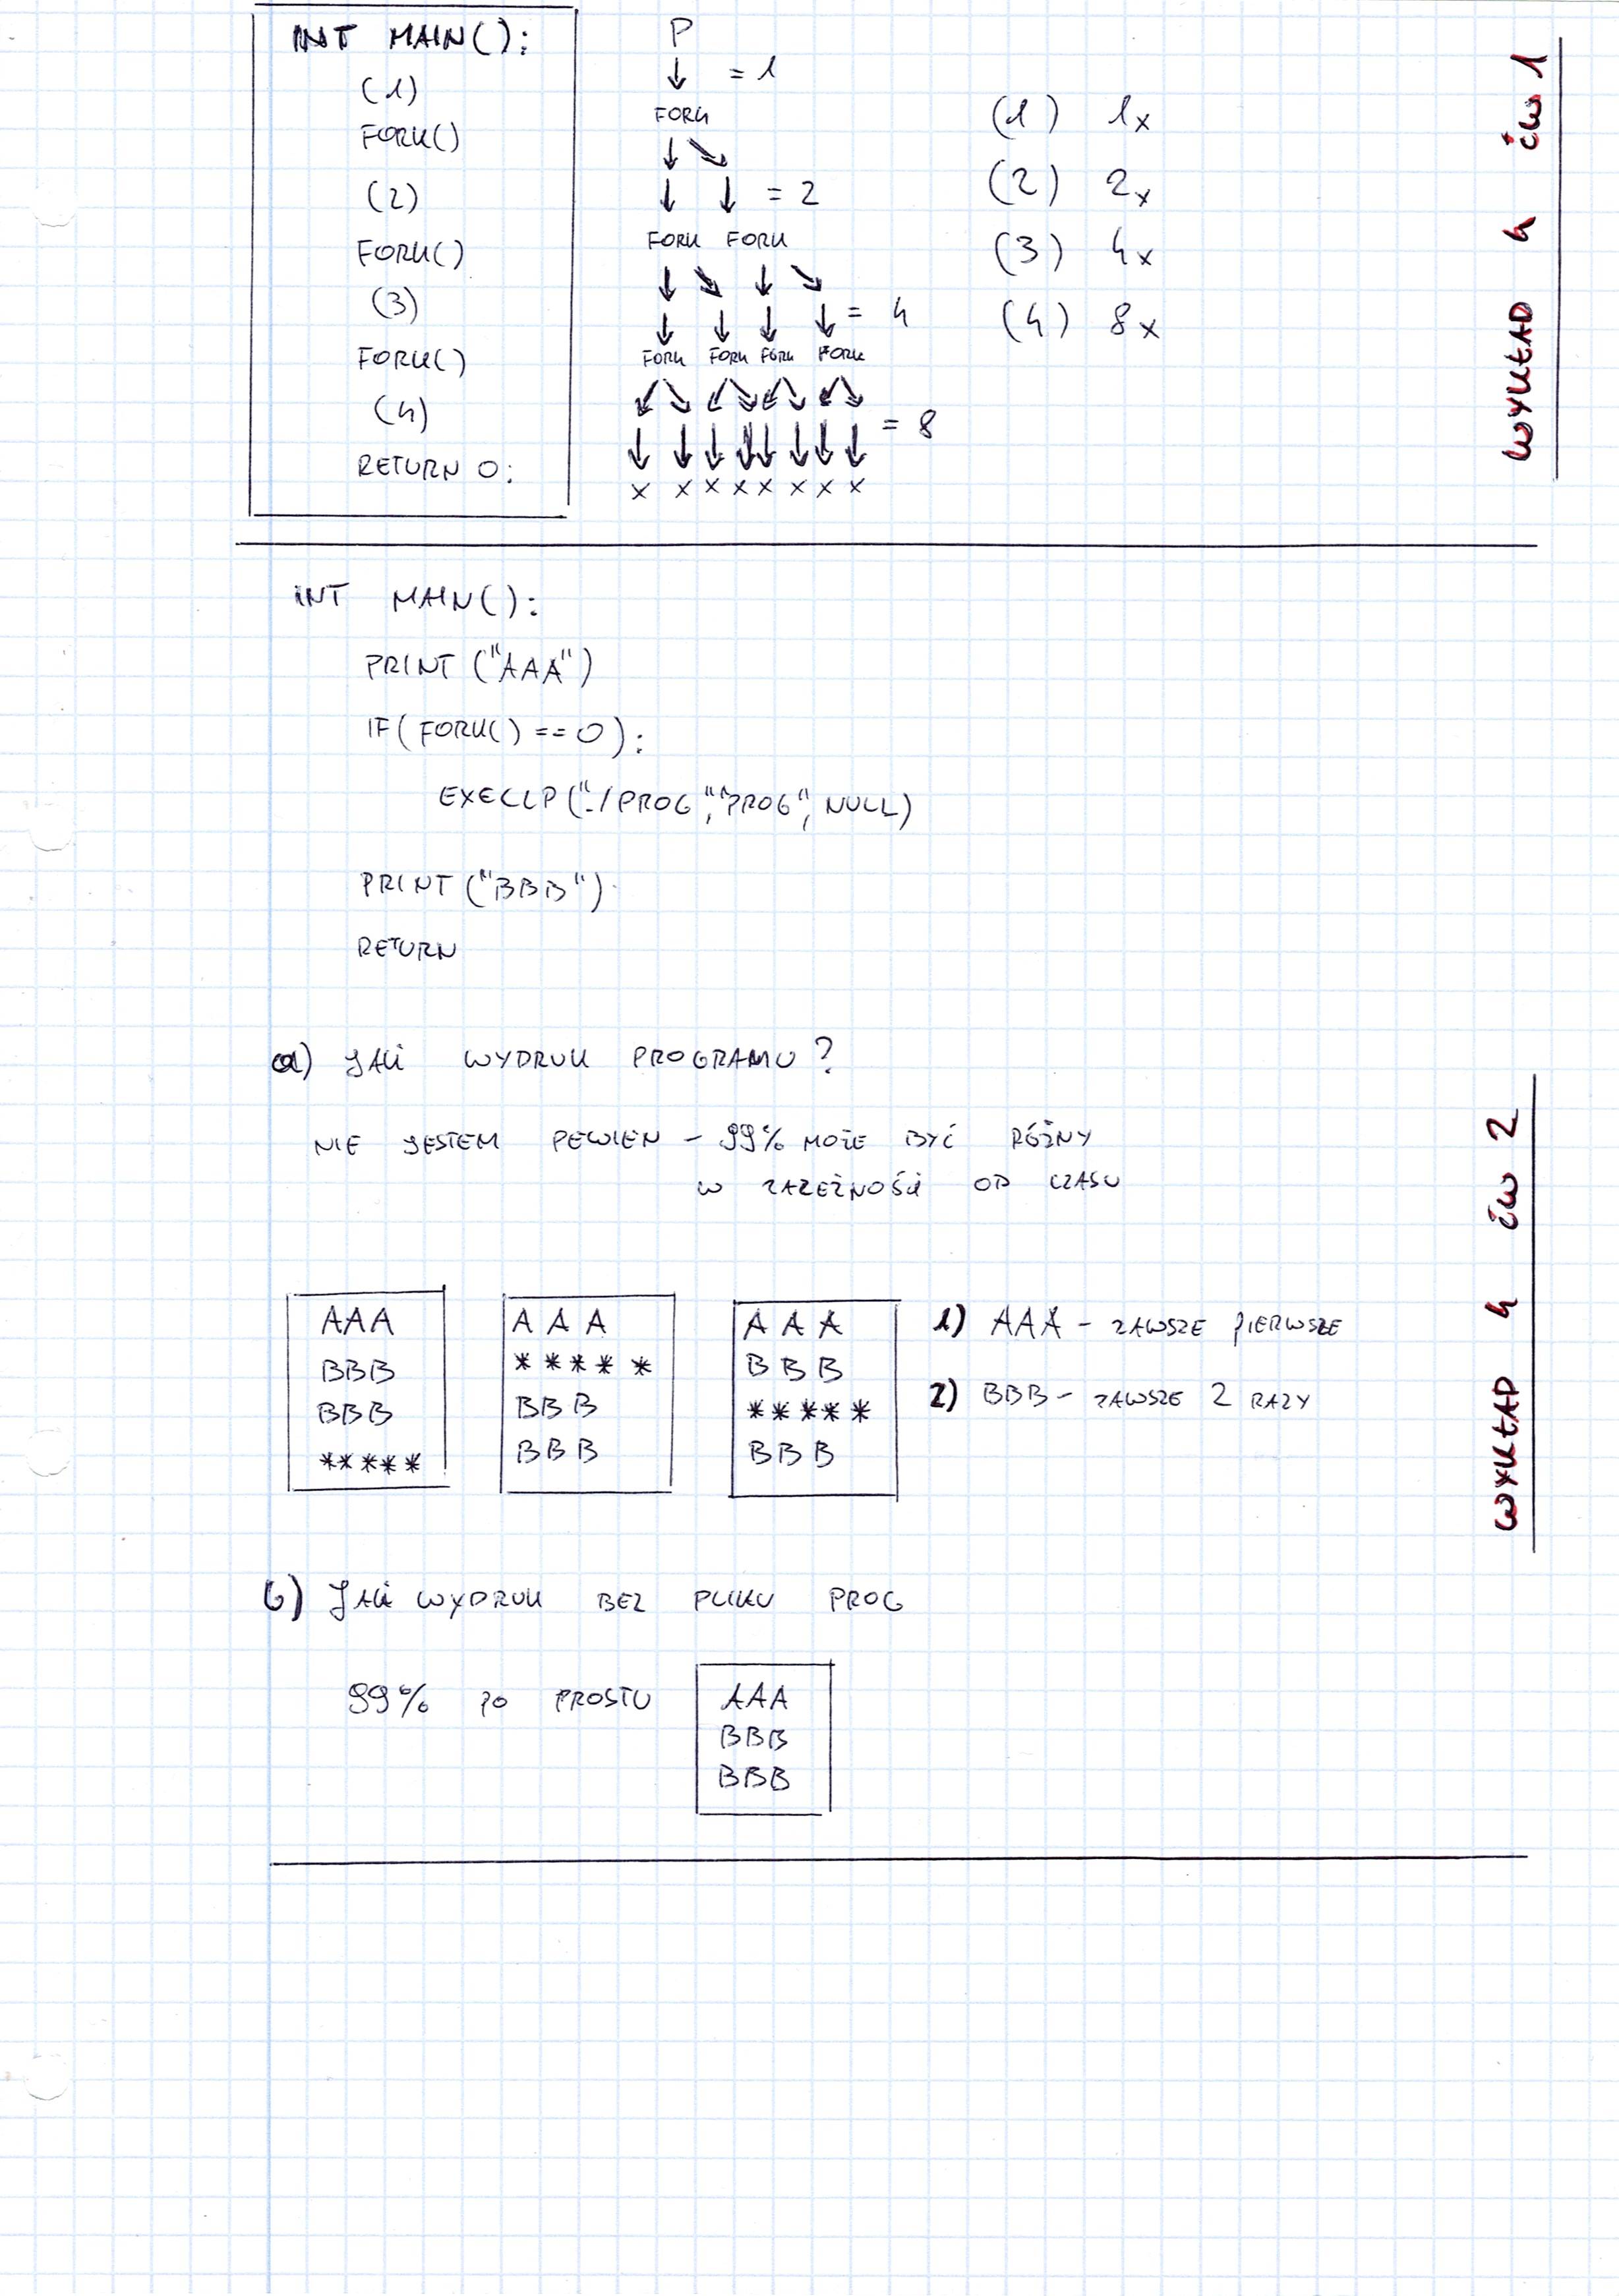 INT MAIN():
(1)
FORK()
(2)
FORK()
(3)
FORK()
(4)
RETURN 0;
P
= 1
FORK
= 2
FORK FORK
= 4
FORK FORK FORK FORK
= 8
x x x x x x x x
(1) 1x
(2) 2x
(3) 4x
(4) 8x
WYKŁAD 4 ćw 1
INT MAIN():
PRINT ("AAA")
IF( FORK() == 0):
EXECLP("./PROG","PROG", NULL)
PRINT ("BBB")
RETURN
a) JAKI WYDRUK PROGRAMU?
NIE JESTEM PEWIEN - 99% MOŻE BYĆ RÓŻNY
W ZALEŻNOŚCI OD CZASU
AAA
BBB
BBB
*****
A A A
*****
BBB
BBB
A A A
BBB
*****
BBB
1) AAA - ZAWSZE PIERWSZE
2) BBB - ZAWSZE 2 RAZY
WYKŁAD 4 ćw 2
b) JAKI WYDRUK BEZ PLIKU PROG
99% PO PROSTU
AAA
BBB
BBB